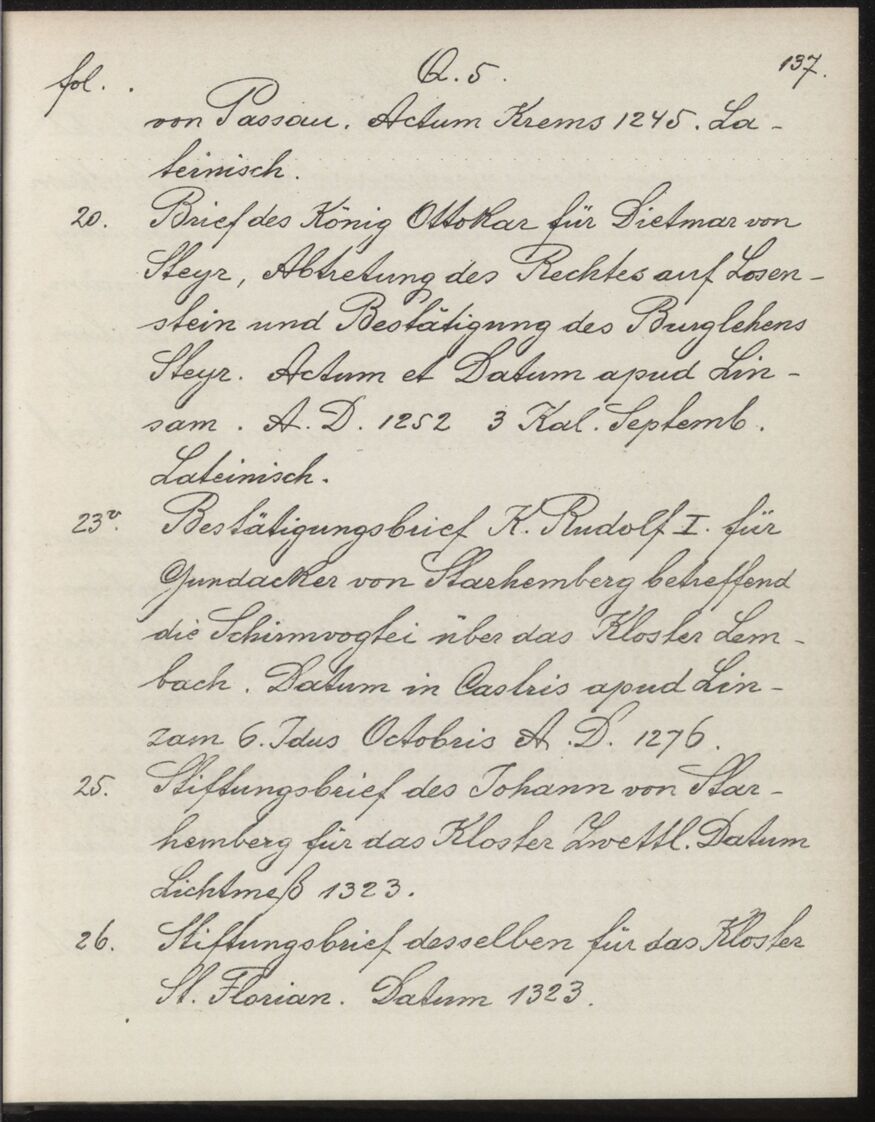 fol. . Q. 5. 137.
von Passau. Actum Krems 1245. La-
teinisch.
20. Brief des König Ottokar für Dietmar von
Steyr, Abtretung des Rechtes auf Losen-
stein und Bestätigung des Burglehens
Steyr. Actum et Datum apud Lin-
sam. A. D. 1252 3 Kal. Septemb.
Lateinisch.
23v. Bestätigungsbrief K. Rudolf I. für
Gundacker von Starhemberg betreffend
die Schirmvogtei über das Kloster Lem-
bach. Datum in Castris apud Lin-
zam 6. Idus Octobris A. D. 1276.
25. Stiftungsbrief des Johann von Star-
hemberg für das Kloster Zwettl. Datum
Lichtmeß 1323.
26. Stiftungsbrief desselben für das Kloster
St. Florian. Datum 1323.